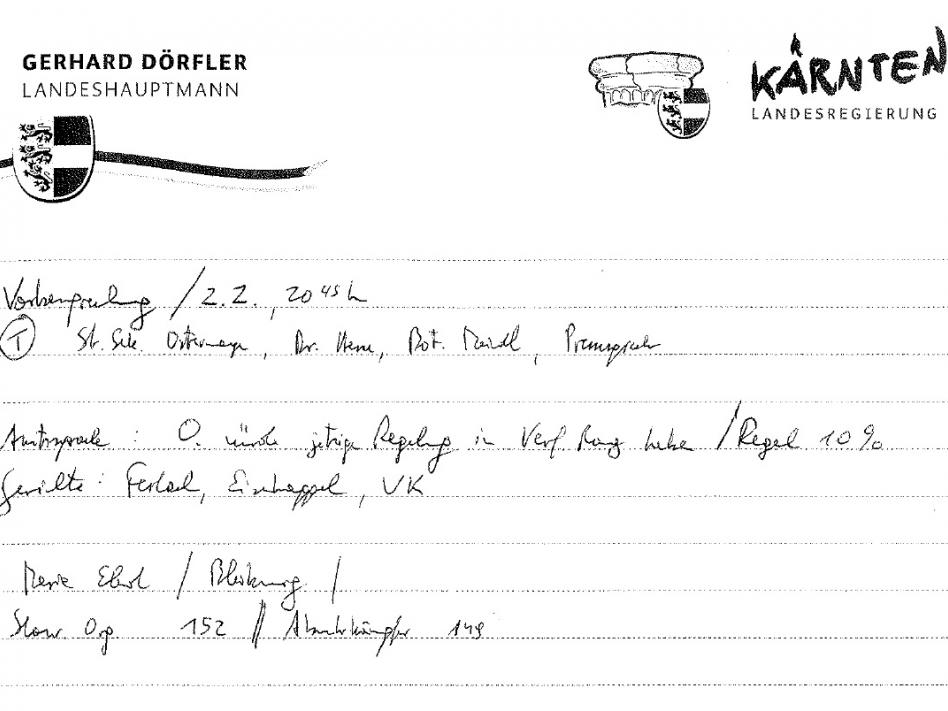 GERHARD DÖRFLER
LANDESHAUPTMANN
KÄRNTEN
LANDESREGIERUNG
Vorbesprechung / 2.2., 20 45 h
T St. Sek. Ostermayer, Dr. , Bot.
Amtssprache : O. würde jetzige Regelung in Verf. Rang heben / Regel 10%
Gerichte : Ferlach, Eisenkappel, VK
/ Bleiburg /
Slow. Org 152 // Abwehrkämpfer 149